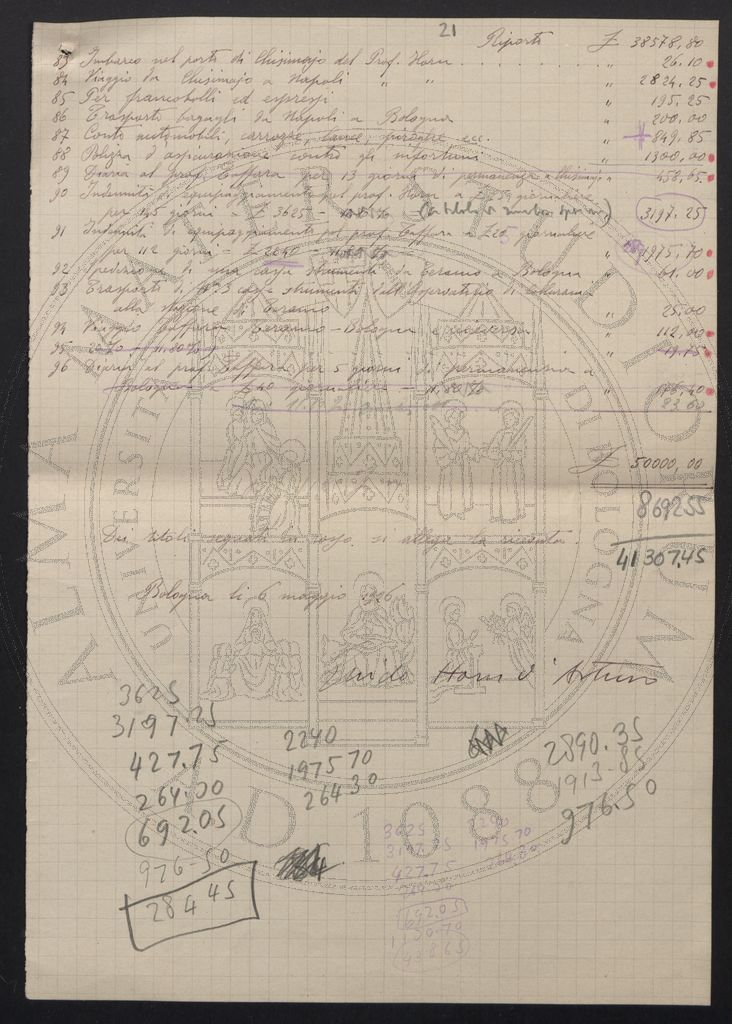 21
Riporti £ 38578,80
83 Imbarco nel porto di Chisimajo del Prof. Horn . . . . . . . " 26.10
84 Viaggio da Chisimajo a Napoli " " " 2824.25
85 Per francobolli ed espressi " 195.25
86 Trasporto bagagli da Napoli a Bologna " 200,00
87 Conto automobili, carrozze, lance, piroghe ecc. " 849.85
88 Polizza d'assicurazione contro gli infortuni " 1300,00
89 Diaria al prof. Taffara per 13 giorni di permanenza a Chisimajo " 458,65
90 Indennità di equipaggiamento pel prof. Horn a £ 25 giornaliere
per 145 giorni = £ 3625 - 3197.25
91 Indennità di equipaggiamento pel prof. Taffara a £ 20 giornaliere
per 112 giorni - £ 2240 - " 1975,70
92 Spedizione di una cassa strumenti da Teramo a Bologna " 61,00
93 Trasporto di N° 3 casse strumenti dall'Osservatorio di Collurania
alla stazione di Teramo " 25,00
94 Viaggio Taffara Teramo - Bologna e viceversa " 112,00
95 "
96 Diaria al prof. Taffara per 5 giorni di permanenza a
Bologna a £ 40 giornaliere - 11,80% " 176,40
83.60
£ 50000,00
869255
41307.45
Dei titoli segnati in rosso si allega la ricevuta.
Bologna li 6 maggio 1926
Guido Horn d'Arturo
3625
3197.25
427.75
264.30
692.05
976-50
284 45
2240
1975 70
264 30
2890.35
1913-85
976.50
3625
3197.25
427.75
264.30
692.05
438.65
2240
1975 70
264.30
ALMA MATER STUDIORUM
UNIVERSITÀ DI BOLOGNA
A.D. 1088